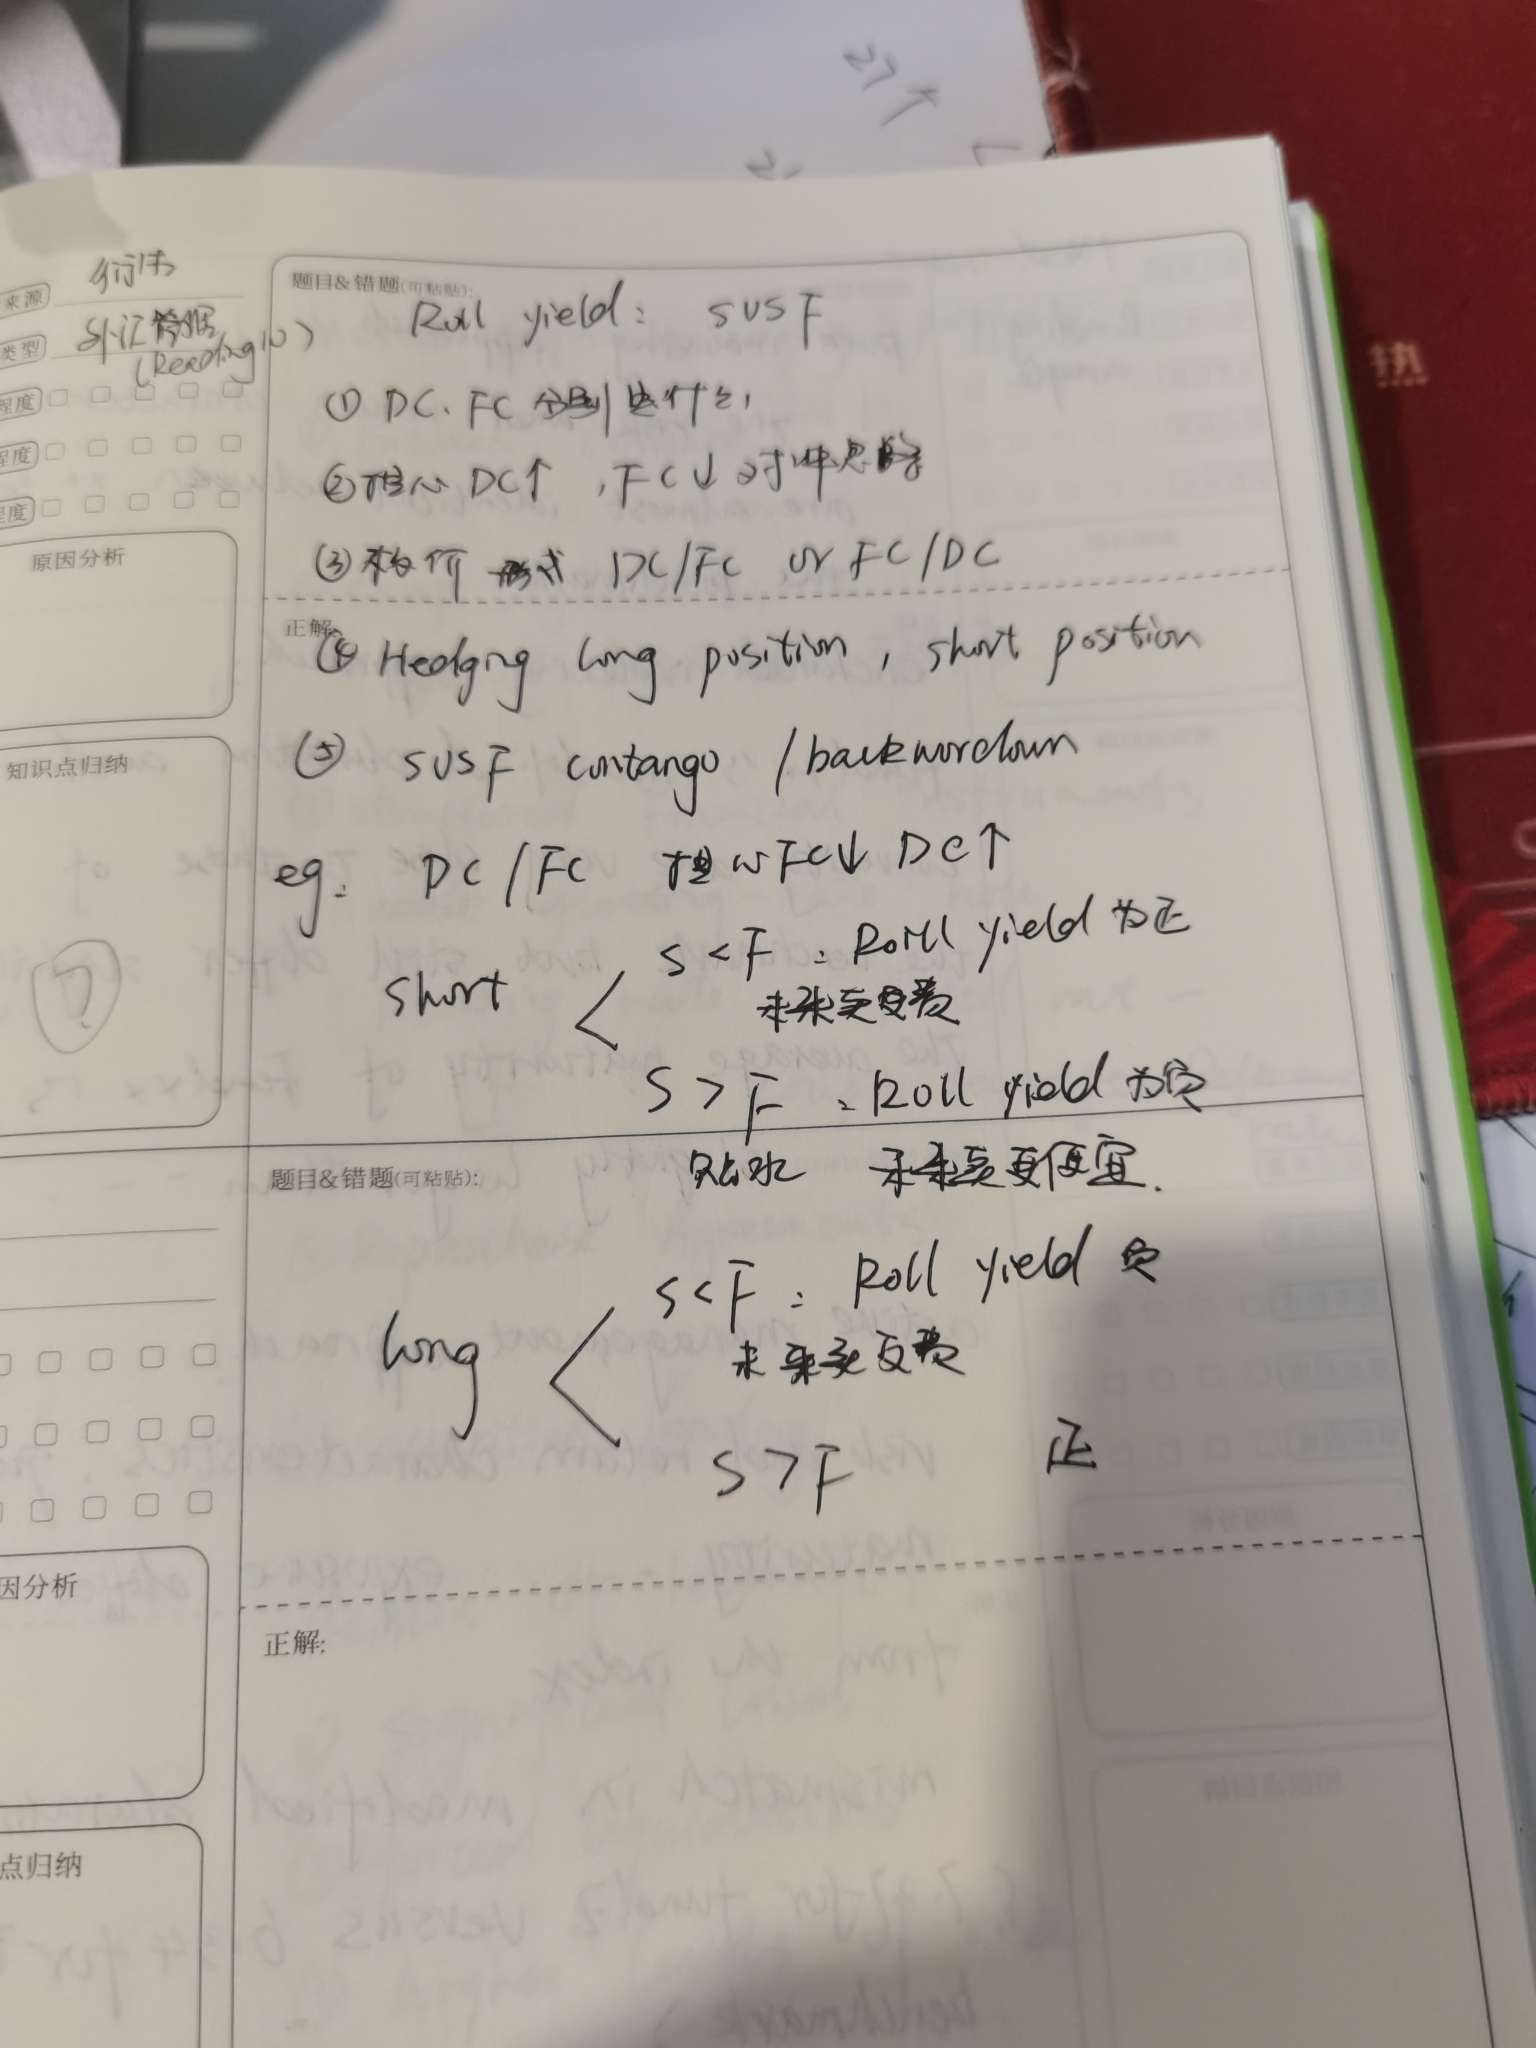 来源 衍生
类型 外汇管理
(Reading 10)
程度
程度
程度
原因分析
知识点归纳
?
题目&错题(可粘贴):
Roll yield: S VS F
① DC、FC 分别是什么
② 担心 DC↑, FC↓ 对冲思路
③ 标价形式 DC/FC or FC/DC
正解:
④ Hedging long position, short position
⑤ S VS F contango /backwordown
eg: DC/FC 担心FC↓ DC↑
short
S<F: Roll yield 为正
未来卖更贵
S>F: Roll yield 为负
题目&错题(可粘贴):
贴水 未来卖更便宜.
long
S<F: Roll yield 负
未来买更贵
S>F 正
因分析
正解:
点归纳
热